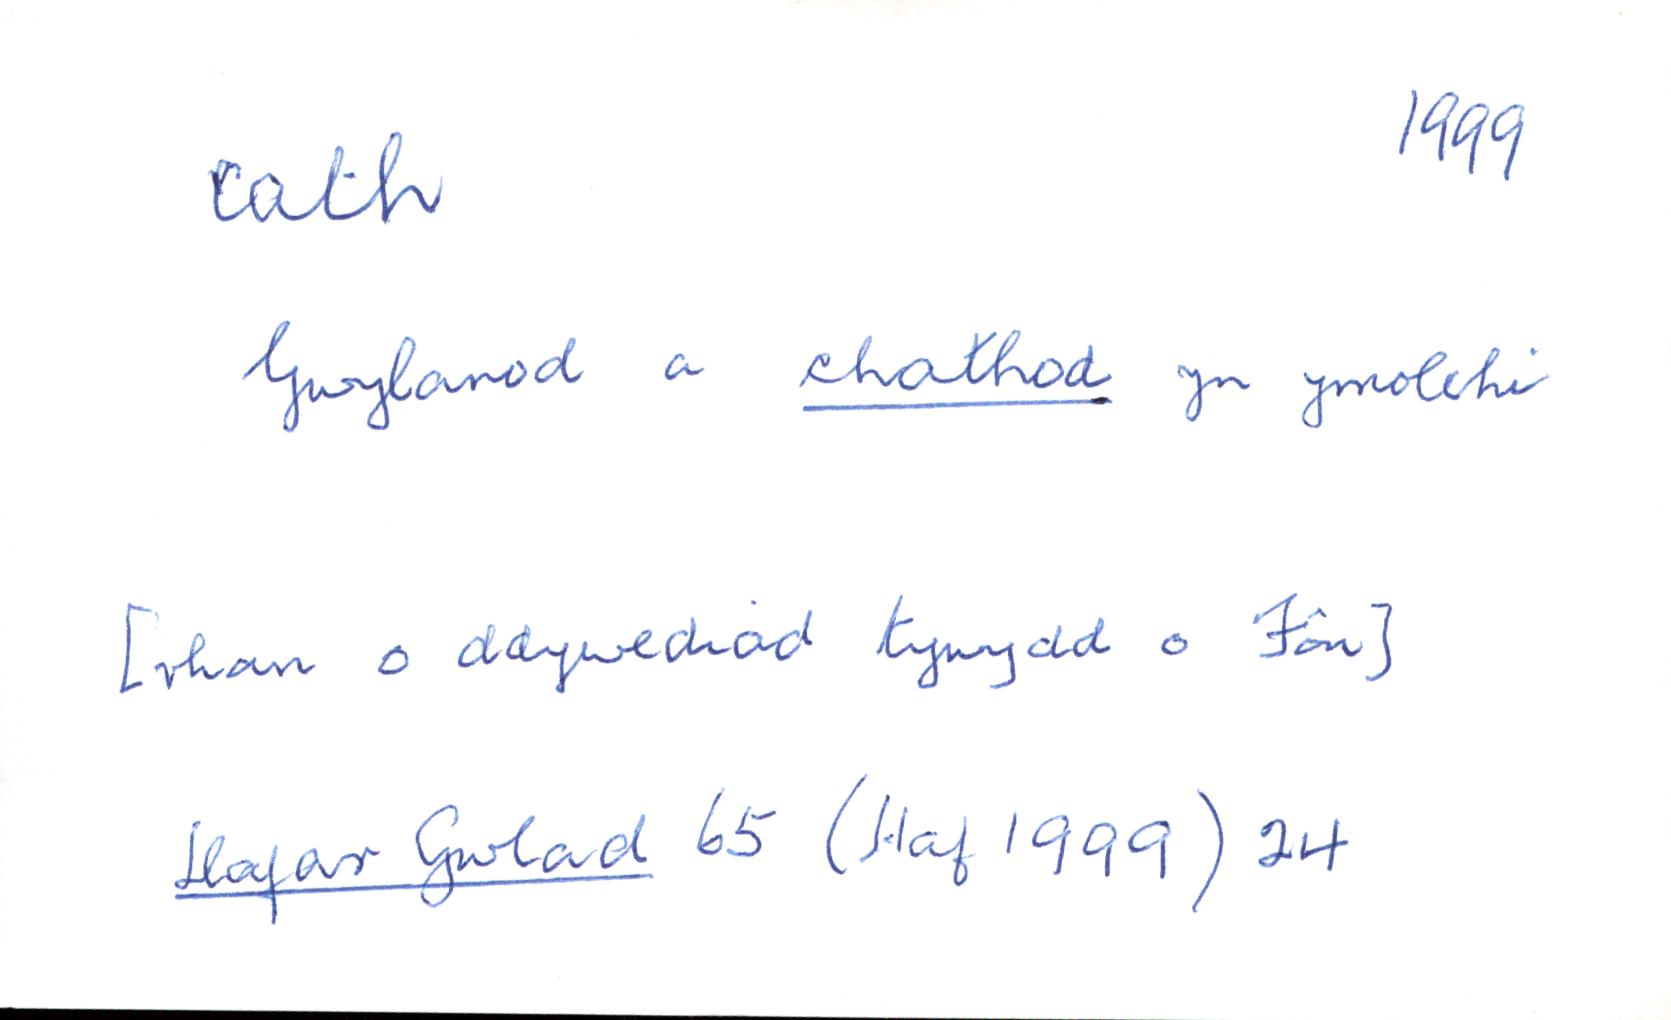 1999
cath
Gwylanod a chathod yn ymolchi
[rhan o ddywediad tywydd o Fôn]
Llafar Gwlad 65 (Haf 1999) 24